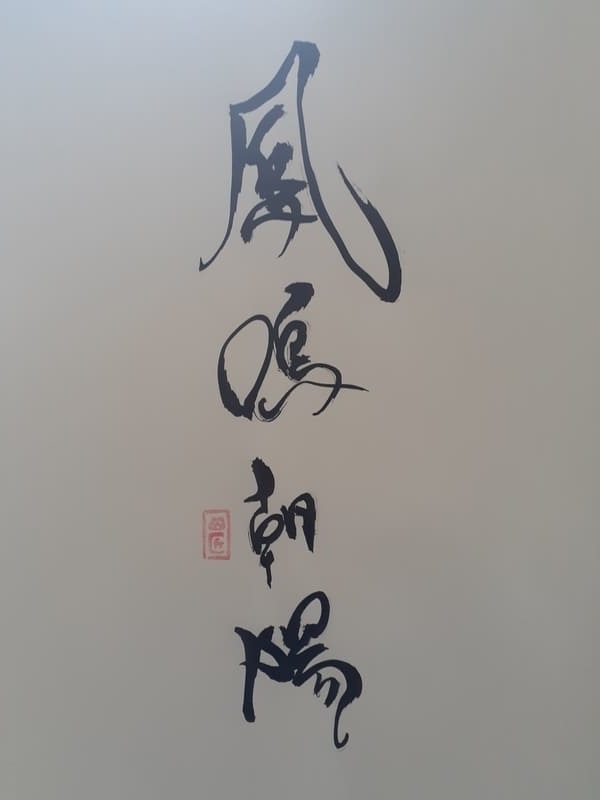 鳳鳴朝陽